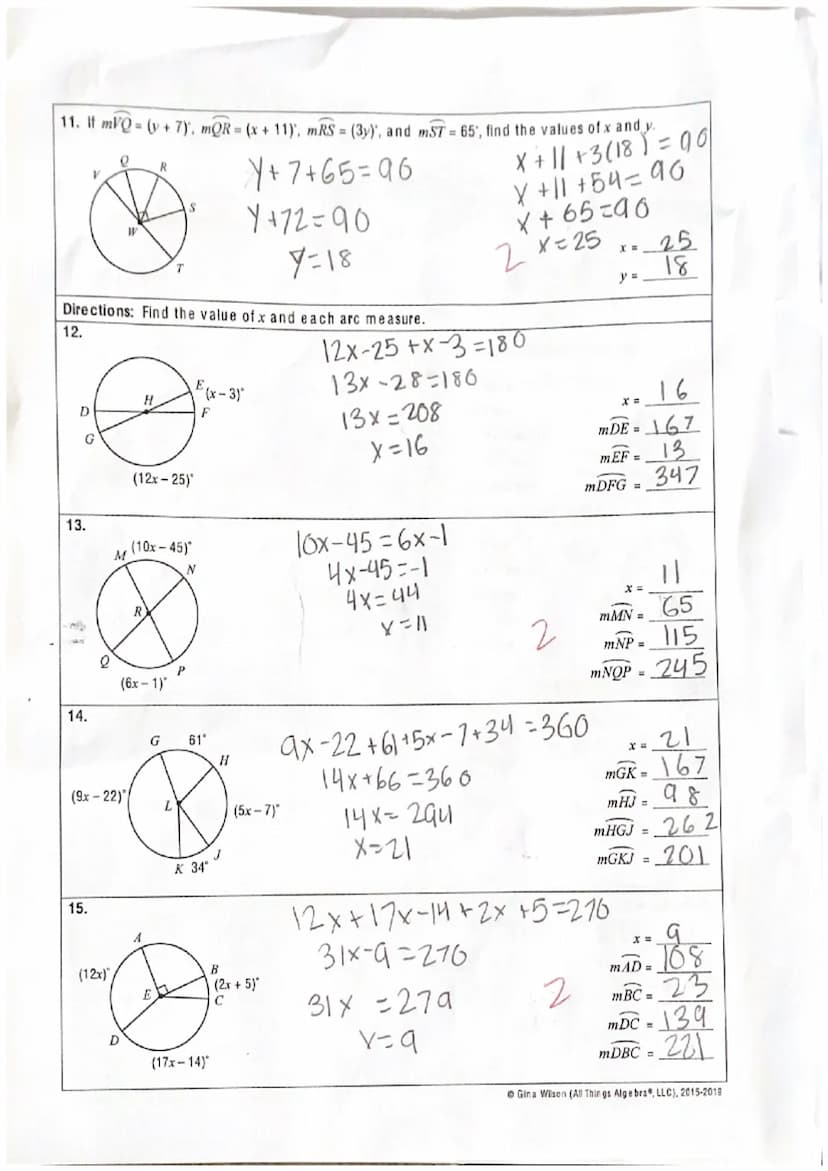 11. If mVQ = (y + 7)°, mQR = (x + 11)°, mRS = (3y)°, and mST = 65°, find the values of x and y.
V Q R S W T
y + 7 + 65 = 90
y + 72 = 90
y = 18
x + 11 + 3(18) = 90
x + 11 + 54 = 90
x + 65 = 90
x = 25
2
x = 25
y = 18
Directions: Find the value of x and each arc measure.
12.
D H E (x – 3)°
G F
(12x – 25)°
12x - 25 + x - 3 = 180
13x - 28 = 180
13x = 208
x = 16
x = 16
mDE = 167
mEF = 13
mDFG = 347
13.
M (10x – 45)°
N
R
Q P
(6x – 1)°
10x - 45 = 6x - 1
4x - 45 = -1
4x = 44
x = 11
2
x = 11
mMN = 65
mNP = 115
mNQP = 245
14.
G 61°
H
(9x – 22)°
L (5x – 7)°
J
K 34°
9x - 22 + 61 + 5x - 7 + 34 = 360
14x + 66 = 360
14x = 294
x = 21
x = 21
mGK = 167
mHJ = 98
mHGJ = 262
mGKJ = 201
15.
A
(12x)°
B
(2x + 5)°
E C
D
(17x – 14)°
12x + 17x - 14 + 2x + 5 = 270
31x - 9 = 270
31x = 279
x = 9
2
x = 9
mAD = 108
mBC = 23
mDC = 139
mDBC = 221
© Gina Wilson (All Things Algebra®, LLC), 2015-2018